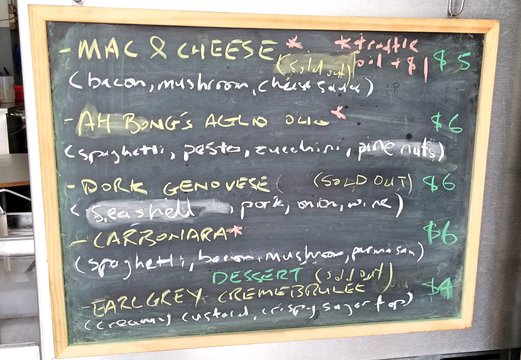 - MAC & CHEESE * *truffle oil + $1 $5
(sold out)
(bacon, mushroom, cheese sauce)
- AH BONG'S AGLIO OLIO * $6
(spaghetti, pesto, zucchini, pine nuts)
- PORK GENOVESE (SOLD OUT) $6
(seashell, pork, onion, wine)
- CARBONARA * $6
(spaghetti, bacon, mushroom, parmisan)
DESSERT (sold out)
- EARL GREY CREME BRULEE $4
(creamy custard, crispy sugar top)